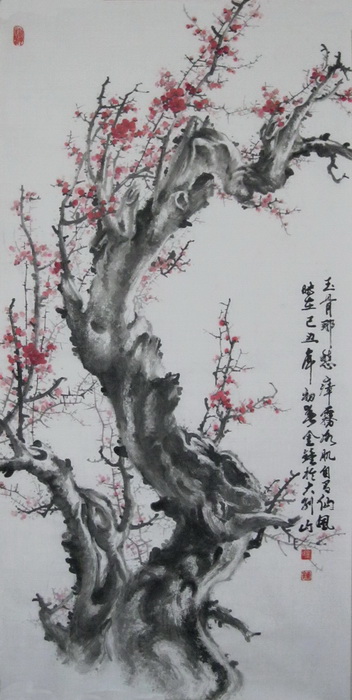 玉骨那愁瘴雾冰肌自有仙风
时在己丑年初夏金钟於大别山